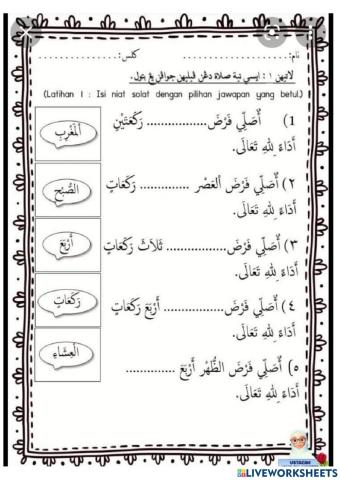 نام:................ كلس:................
لاتيهن ١ : ايسي نية صلاة دڠن ڤيليهن جواڤن يڠ بتول.
(Latihan 1 : Isi niat solat dengan pilihan jawapan yang betul.)
1) أُصَلِّي فَرْضَ................ رَكْعَتَيْنِ
أَدَاءً لِلَّهِ تَعَالَى.
٢) أُصَلِّي فَرْضَ الْعَصْر ............. رَكَعَاتٍ
أَدَاءً لِلَّهِ تَعَالَى.
٣) أُصَلِّي فَرْضَ................ ثَلَاثَ رَكَعَاتٍ
أَدَاءً لِلَّهِ تَعَالَى.
٤) أُصَلِّي فَرْضَ................ أَرْبَعَ رَكَعَاتٍ
أَدَاءً لِلَّهِ تَعَالَى.
٥) أُصَلِّي فَرْضَ الظُّهْرِ أَرْبَعَ .............
أَدَاءً لِلَّهِ تَعَالَى.
الْمَغْرِبِ
الصُّبْحِ
أَرْبَعَ
رَكَعَاتٍ
الْعِشَاءِ
USTAZAH
LIVEWORKSHEETS